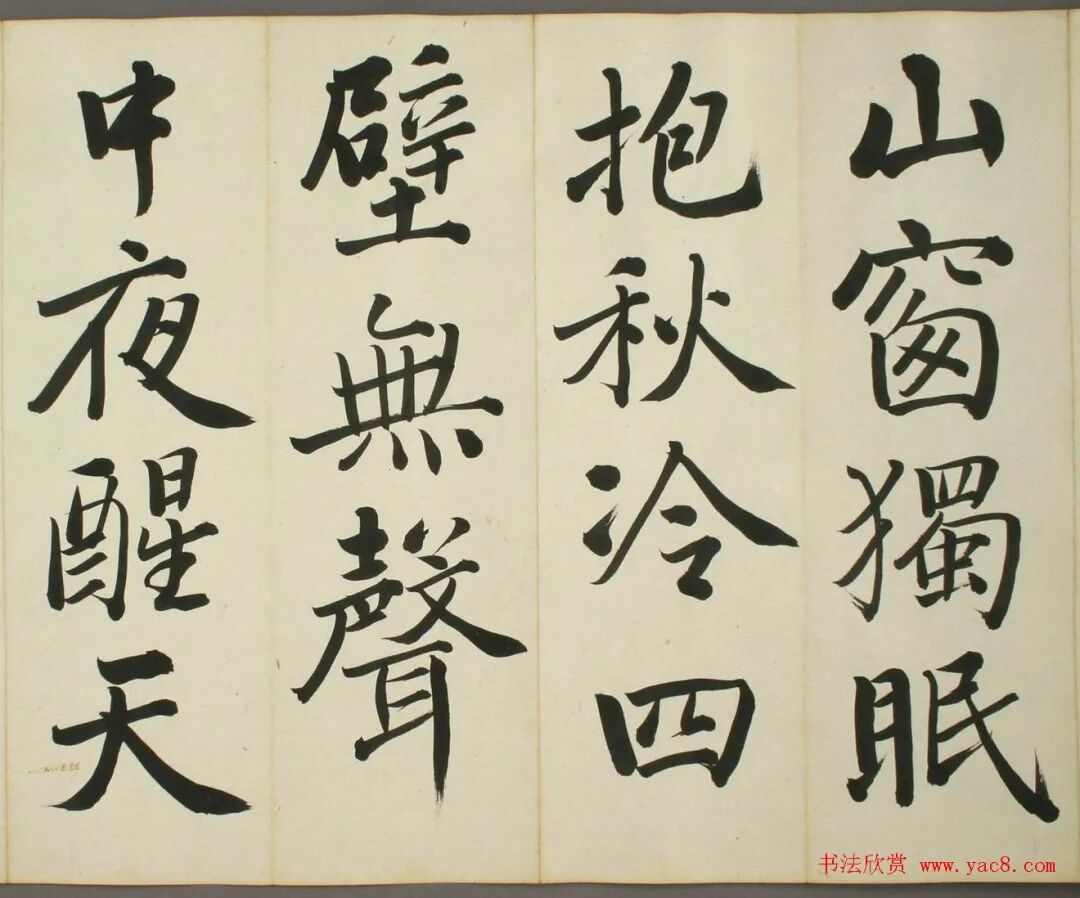 山窗獨眠
抱秋冷四
壁無聲
中夜醒天
书法欣赏 www.yac8.com